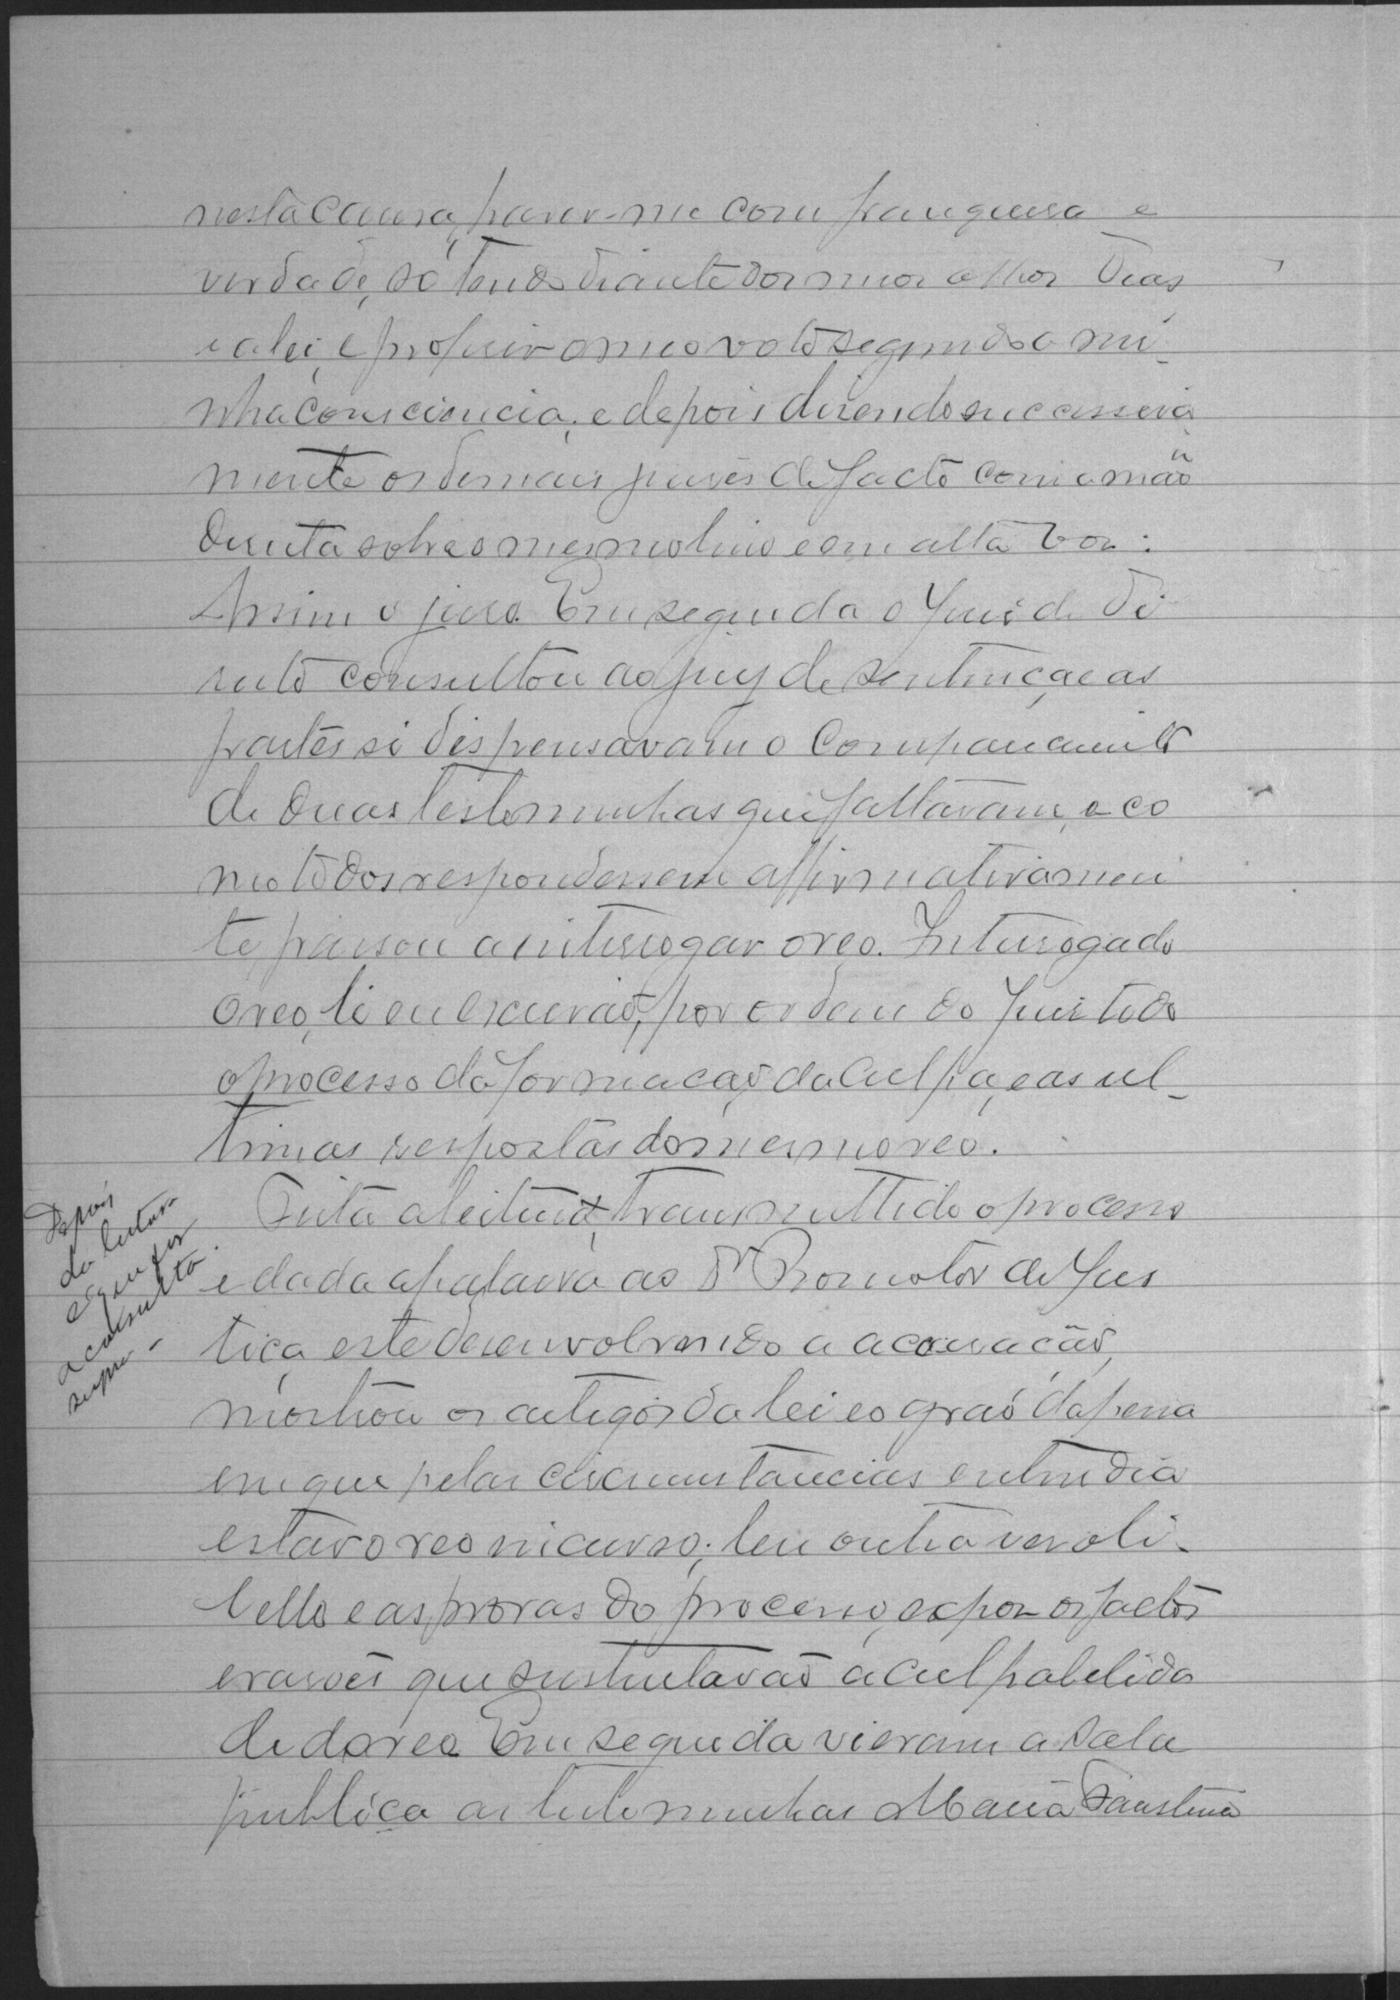 nesta causa, haver-me com franqueza e
verdade, só tendo diante dos meus olhos Deus
e a lei, e proferir o meo voto segundo a mi-
nha consciencia; e depois disendo successiva
mente os demais juises de facto com a mão
direita sobre o mesmo livro e em alta voz:
Assim o juro. Em seguida o Juis de Di
reito consultou ao jury de sentença e as
partes si dispensavam o comparecimento
de duas testemunhas que faltavam, e co
mo todos respondessem affirmativamen
te, passou a interrogar o reo. Interrogado
o reo, li eu escrivão, por ordem do Juis todo
o processo da formação da culpa, e as ul-
timas respostas do mesmo reo.
Feita a leitura, transmittido o processo
e dada a palavra ao Dr Promotor de Jus
tiça, este desenvolvendo a accusação,
mostrou os artigos da lei e o gráo da pena
em que pelas circumstancias entendia
estar o reo incurso; leu outra ves o li-
bello e as provas do processo, expoz os factos
e rasões que sustentavão a culpabilida
de do reo. Em seguida vieram a sala
publica as testemunhas Maria Faustina
Depois
da leitura
é que fes
a consulta
supra-